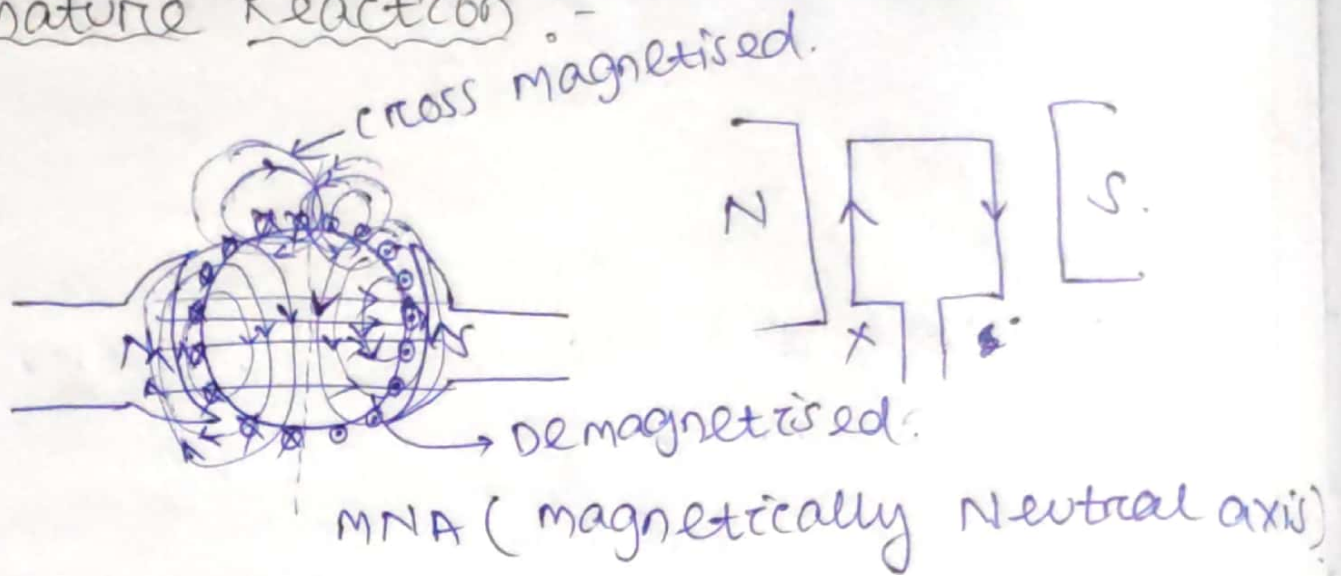 nature Reaction -
cross magnetised.
N S.
N S
X
Demagnetised.
MNA ( magnetically Neutral axis)